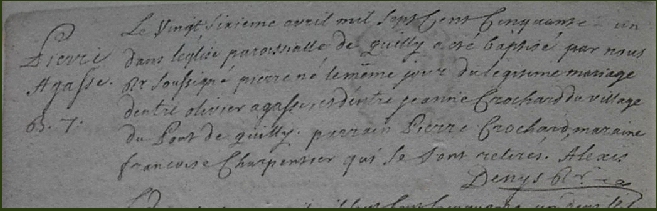 Le vingt sixieme avril mil sept cent cinquante et un
Pierre
dans leglise paroissialle de quilly a été baptisé par nous
Agasse.
ptr soussigné pierre né le même jour du legitime mariage
dentre olivier agasse, et dentre jeanne Crochard du village
B. 7.
du Pont de quilly. parrain Pierre Crochard, maraine
francoise Charpentier qui se sont retirés. Alexis
Denys ptr